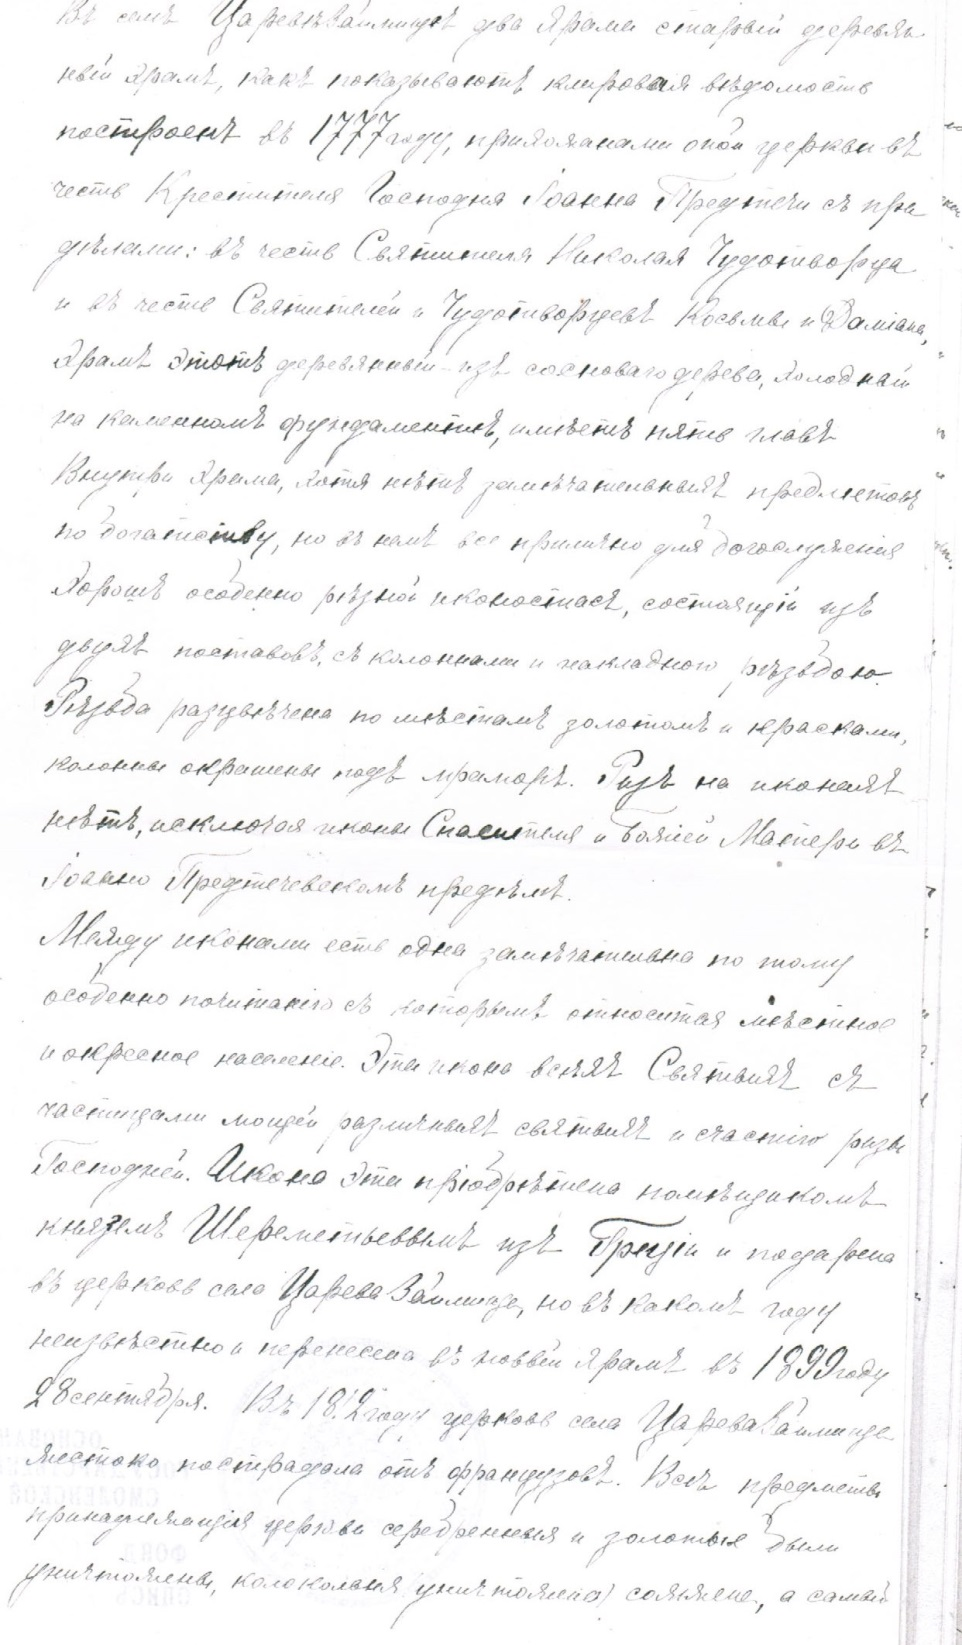 Въ селѣ Царевѣ Займищѣ два храма старый деревян-
ный храмъ, какъ показываютъ клировая вѣдомость
построенъ въ 1777 году, прихожанами оной церкви въ
честь Крестителя Господня Іоанна Предтечи съ при
дѣлами: въ честь Святителя Николая Чудотворца
и въ честь Святителей и Чудотворцевъ Косьмы и Даміана,
Храмъ этотъ деревянный изъ сосноваго дерева, холодный
на каменномъ фундаментѣ, имѣетъ пять главъ
Внутри храма, хотя нѣтъ замѣчательныхъ предметовъ
по богатству, но въ немъ все прилично для богослуженія
Хорошъ особенно рѣзной иконостасъ, состоящій изъ
двухъ поставовъ, съ колоннами и накладною рѣзьбою.
Рѣзьба разцвѣчена по мѣстамъ золотомъ и красками,
колонны окрашены подъ мраморъ. Ризъ на иконахъ
нѣтъ, исключая иконы Спасителя и Божіей Матери въ
Іоанно Предтечевскомъ предѣлѣ.
Между иконами есть одна замѣчательна по тому
особенно почитанію съ которымъ относится мѣстное
и окресное населеніе. Эта икона всѣхъ Святыхъ съ
частицами мощей различныхъ святыхъ и счастію ризы
Господней. Икона эта пріобрѣтена помѣщикомъ
княземъ Шереметьеввымъ изъ Греціи и подарена
въ церковь села Царева Займища, но въ какомъ году
неизвѣстно и перенесена въ новый храмъ въ 1899 году
28 сентября. Въ 1812 году церковь села Царева Займища
жестоко пострадала отъ французовъ. Всѣ предметы
принадлежащія церкви серебренныя и золотыя были
уничтожены, колокольня уничтожена) сожжена, а самый